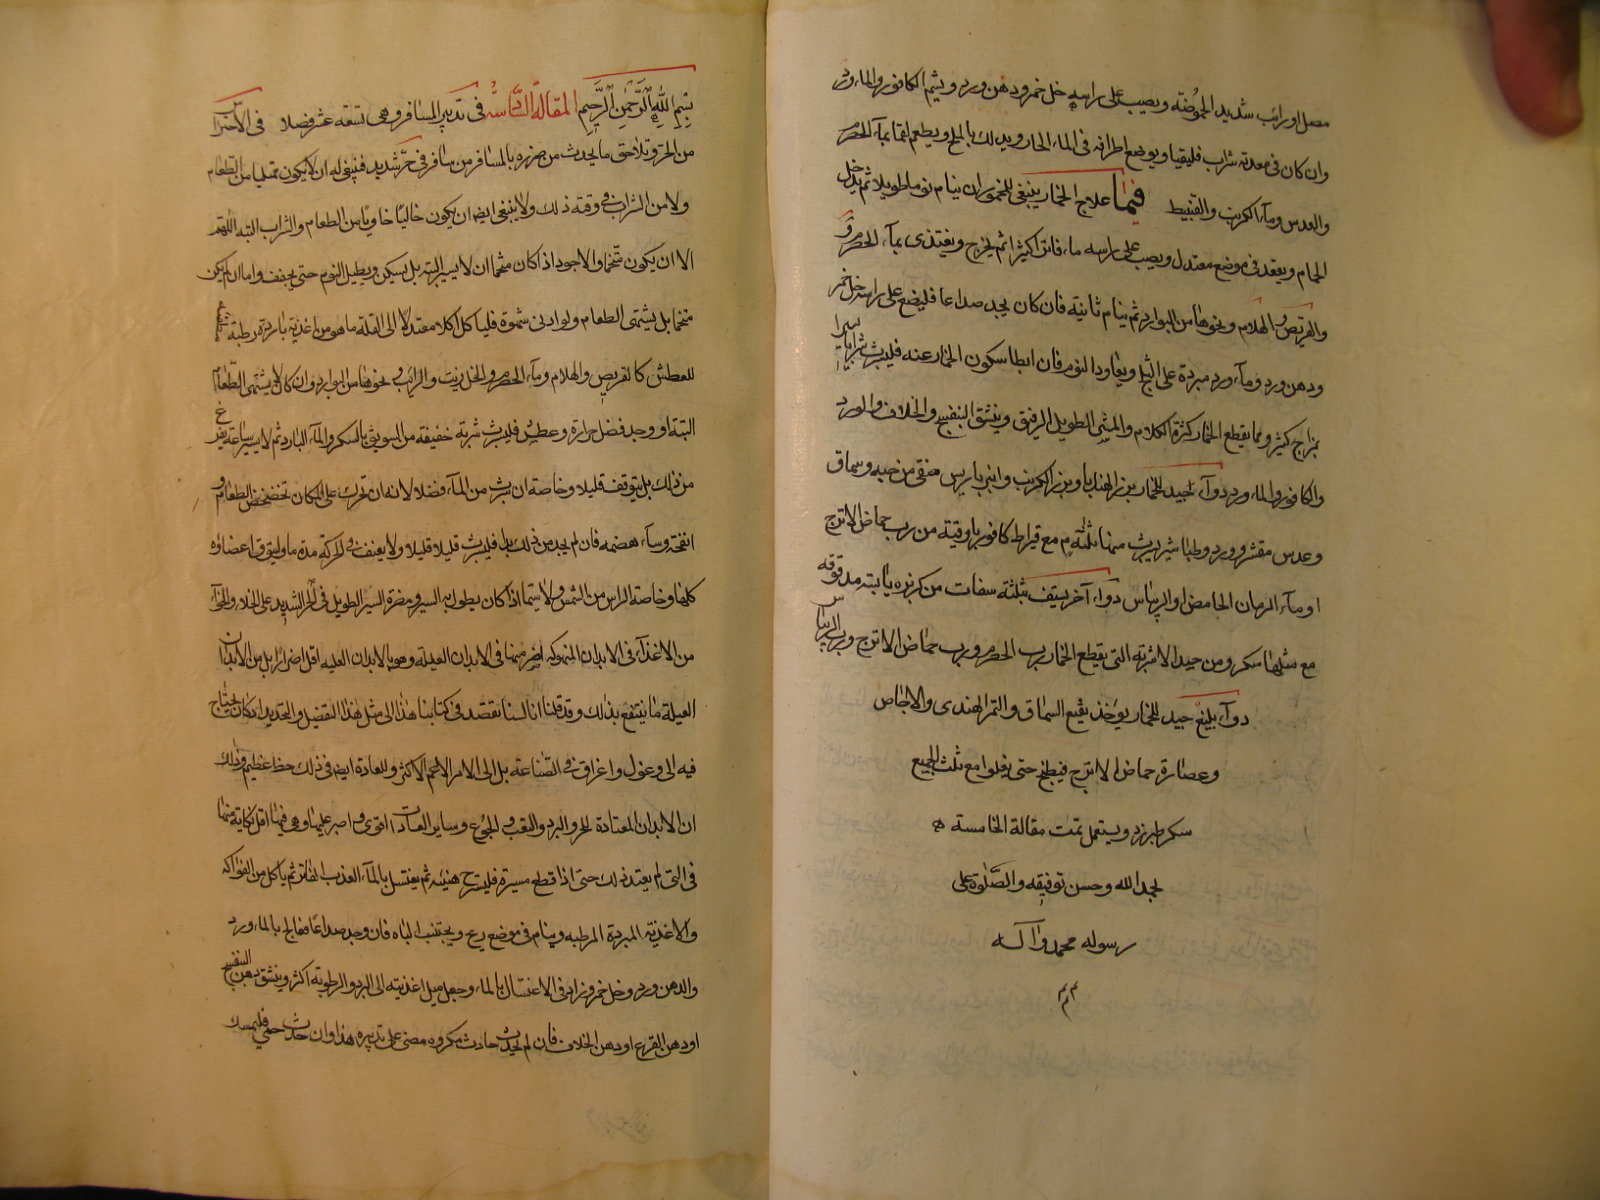 مصل او رائب شديد الحموضة ويصب على راسه خل خمر ودهن ورد ويشم الكافور والماء ورد
وان كان فى معدته شراب فليقيا ويوضع اطرافه فى الماء الحار ويدلك بالملح ويطعم لقما بمآء الحصرم
والعدس ومآء الكرنب والقنبيط فيما علاج الخمار ينبغى للمخمور ان ينام نوما طويلا ثم يدخل
الحمام ويقعد فى موضع معتدل ويصب على راسه ماء فاتر اكثيرا ثم يخرج ويغتذى بمآء الحصرم و
والقريص والهلام ونحوها من البوارد ثم ينام ثانية فان كان يجد صداعا فليضع على راسه خل خمر
ودهن ورد ومآء ورد مبردة على الثلج ويعاود النوم فان ابطا سكون الخمار عنه فليشرب شرابا يسيرا
بمزاج كثير ومما يقطع الخمار كثرة الكلام والمشى الطويل الرفيق وينشق البنفسج والخلاف والورد
والكافور والماء ورد دوآء جيد للخمار بزر الهندبا وبزر الكرنب وانبرباريس منقى من حبه وسماق
وعدس مقشر وورد وطباشير يشرب منها ثلثة م مع قيراط كافور باوقية من رب حماض الاترج
او مآء الرمان الحامض او الريباس دوآء آخر يستف بثلثة سفات من كزبره يابسة مدقوقه
مع مثلها سكر ومن جيد الاشربة التى يقطع الخمار رب الحصرم ورب حماض الاترج ورب الريباس
دوآء بليغ جيد للخمار يؤخذ نقيع السماق والتمر الهندى والاجاص
وعصارة حماض الاترج فيطبخ حتى يغلظ مع ثلث الجميع
سكر طبرزد ويستعمل تمت مقالة الخامسة
بحمد الله وحسن توفيقه والصلوة على
رسوله محمد وآله
بسم الله الرحمن الرحيم المقالة السادسة فى تدبير المسافر وهى تسعة عشر فصلا فى الاحتراس
من الحر وتلاحق ما يحدث من ضرره بالمسافر من سافر فى حر شديد فينبغى له ان لا يكون ممتليا من الطعام
ولا من الشراب فى وقته ذلك ولا ينبغى ايضا ان يكون خاليا خاويا من الطعام والشراب البته اللهم
الا ان يكون متخما والاجود اذا كان متخما ان لا يسير البته بل يسكن ويطيل النوم حتى يخفف واما ان لم يكن
متخما بل يشتهى الطعام ولو ادنى شهوة فليأكل اكلا معتدلا الى القلة ما هو من اغذية باردة رطبة
للعطش كالقريص والهلام ومآء الحصرم والخل زيت والرائب ونحوها من البوارد وان كان لا يشتهى الطعام
البتة او وجد فضل حرارة وعطش فليشرب شربة خفيفة من السويق بالسكر والمآء البارد ثم لا يسير ساعة يفرغ
من ذلك بل يتوقف قليلا وخاصة ان شرب من المآء فضلا لانه ان تحرك على المكان تخضخض الطعام و
انتفخ وسآء هضمه فان لم يجد من ذلك بدا فليشرب قليلا قليلا ولا يعنف فى الحركة مدة ما وليتوق اعضاؤه
كلها وخاصة الراس من الشمس ولا سيما اذا كان يطول به السير ومضرة السير الطويل فى الحر الشديد على الخلاء والخوا
من الاغذآء فى الابدان المنهوكه اضر منها فى الابدان العبلة وهو بالابدان العبله اقل اضرارا بل من الابدان
العبلة ما ينتفع بذلك وقد قلنا انا لسنا نقصد فى كتابنا هذا الى مثل هذا التفضيل والتحديد اذ كان يحتاج
فيه الى وغول واغراق فى الصناعة بل الى الامر الاعم الاكثر وللعادة ايضا فى ذلك حظ عظيم وذلك
ان الابدان المعتادة للحر والبرد والتعب والجوع وساير العادات اقوى واصبر عليها وهى فيها اقل نكاية منها
فى التى لم يعتد ذلك حتى اذا قطع مسيرة فليسترح هنيئه ثم يغتسل بالمآء العذب الفاتر ثم ياكل من الفواكه
والاغذية المبردة المرطبه وينام فى موضع ريح ويجتنب الباه فان وجد صداعا فعالج بالماء ورد
والدهن ورد وخل خمر وزاد فى الاغتسال بالماء وجعل ميل اغذيته الى البرد والرطوبة اكثر وينشق دهن البنفسج
او دهن القرع او دهن الخلاف فان لم يحدث حادث مكروه مضى على تدبيره هذا وان حدث حمى فليمسك